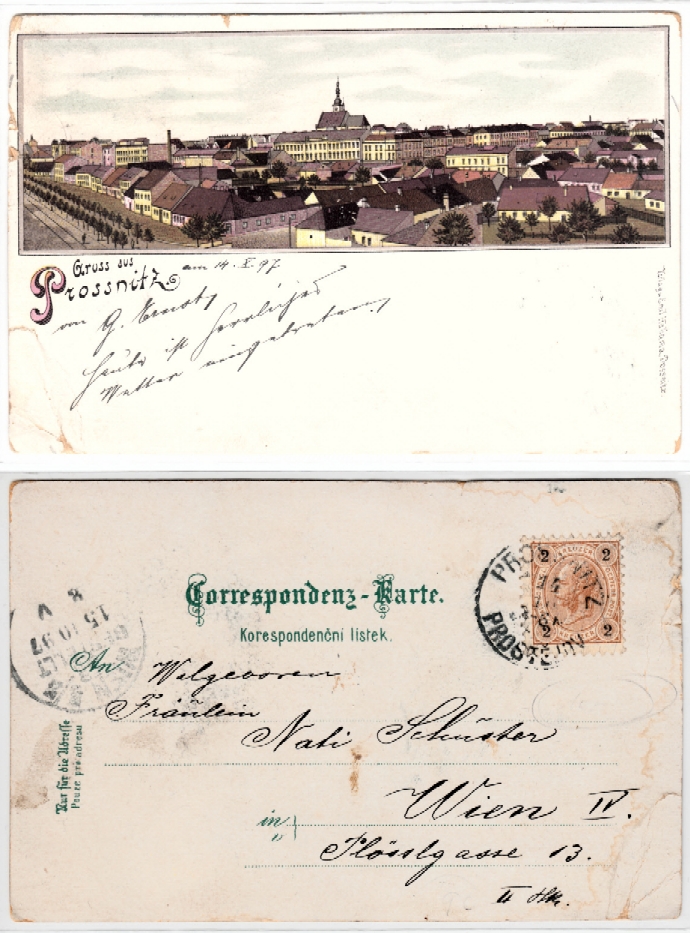 Gruss aus
Prossnitz am 14. X. 97
von G. Ernst,
heute ist herrliches
Wetter eingetreten,
Correspondenz-Karte.
Korespondenční lístek.
2 2
2 2
PROSTĚJOV
8 V
15.10.97
WIEN
An Wolgeboren
Fräulein
Nati Schuster
Nur für die Adresse
Pouze pro adresu
Wien IV.
in
Plösslgasse 13.
II Stk.